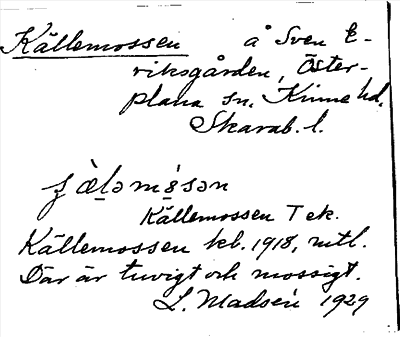 Källemossen å Sven E-
riksgården, Öster-
plana sn. Kinne hd.
Skarab. l.
Källemossen T ek.
Källemossen kb. 1918, mtl.
Där är tuvigt och mossigt.
L. Madsén 1929